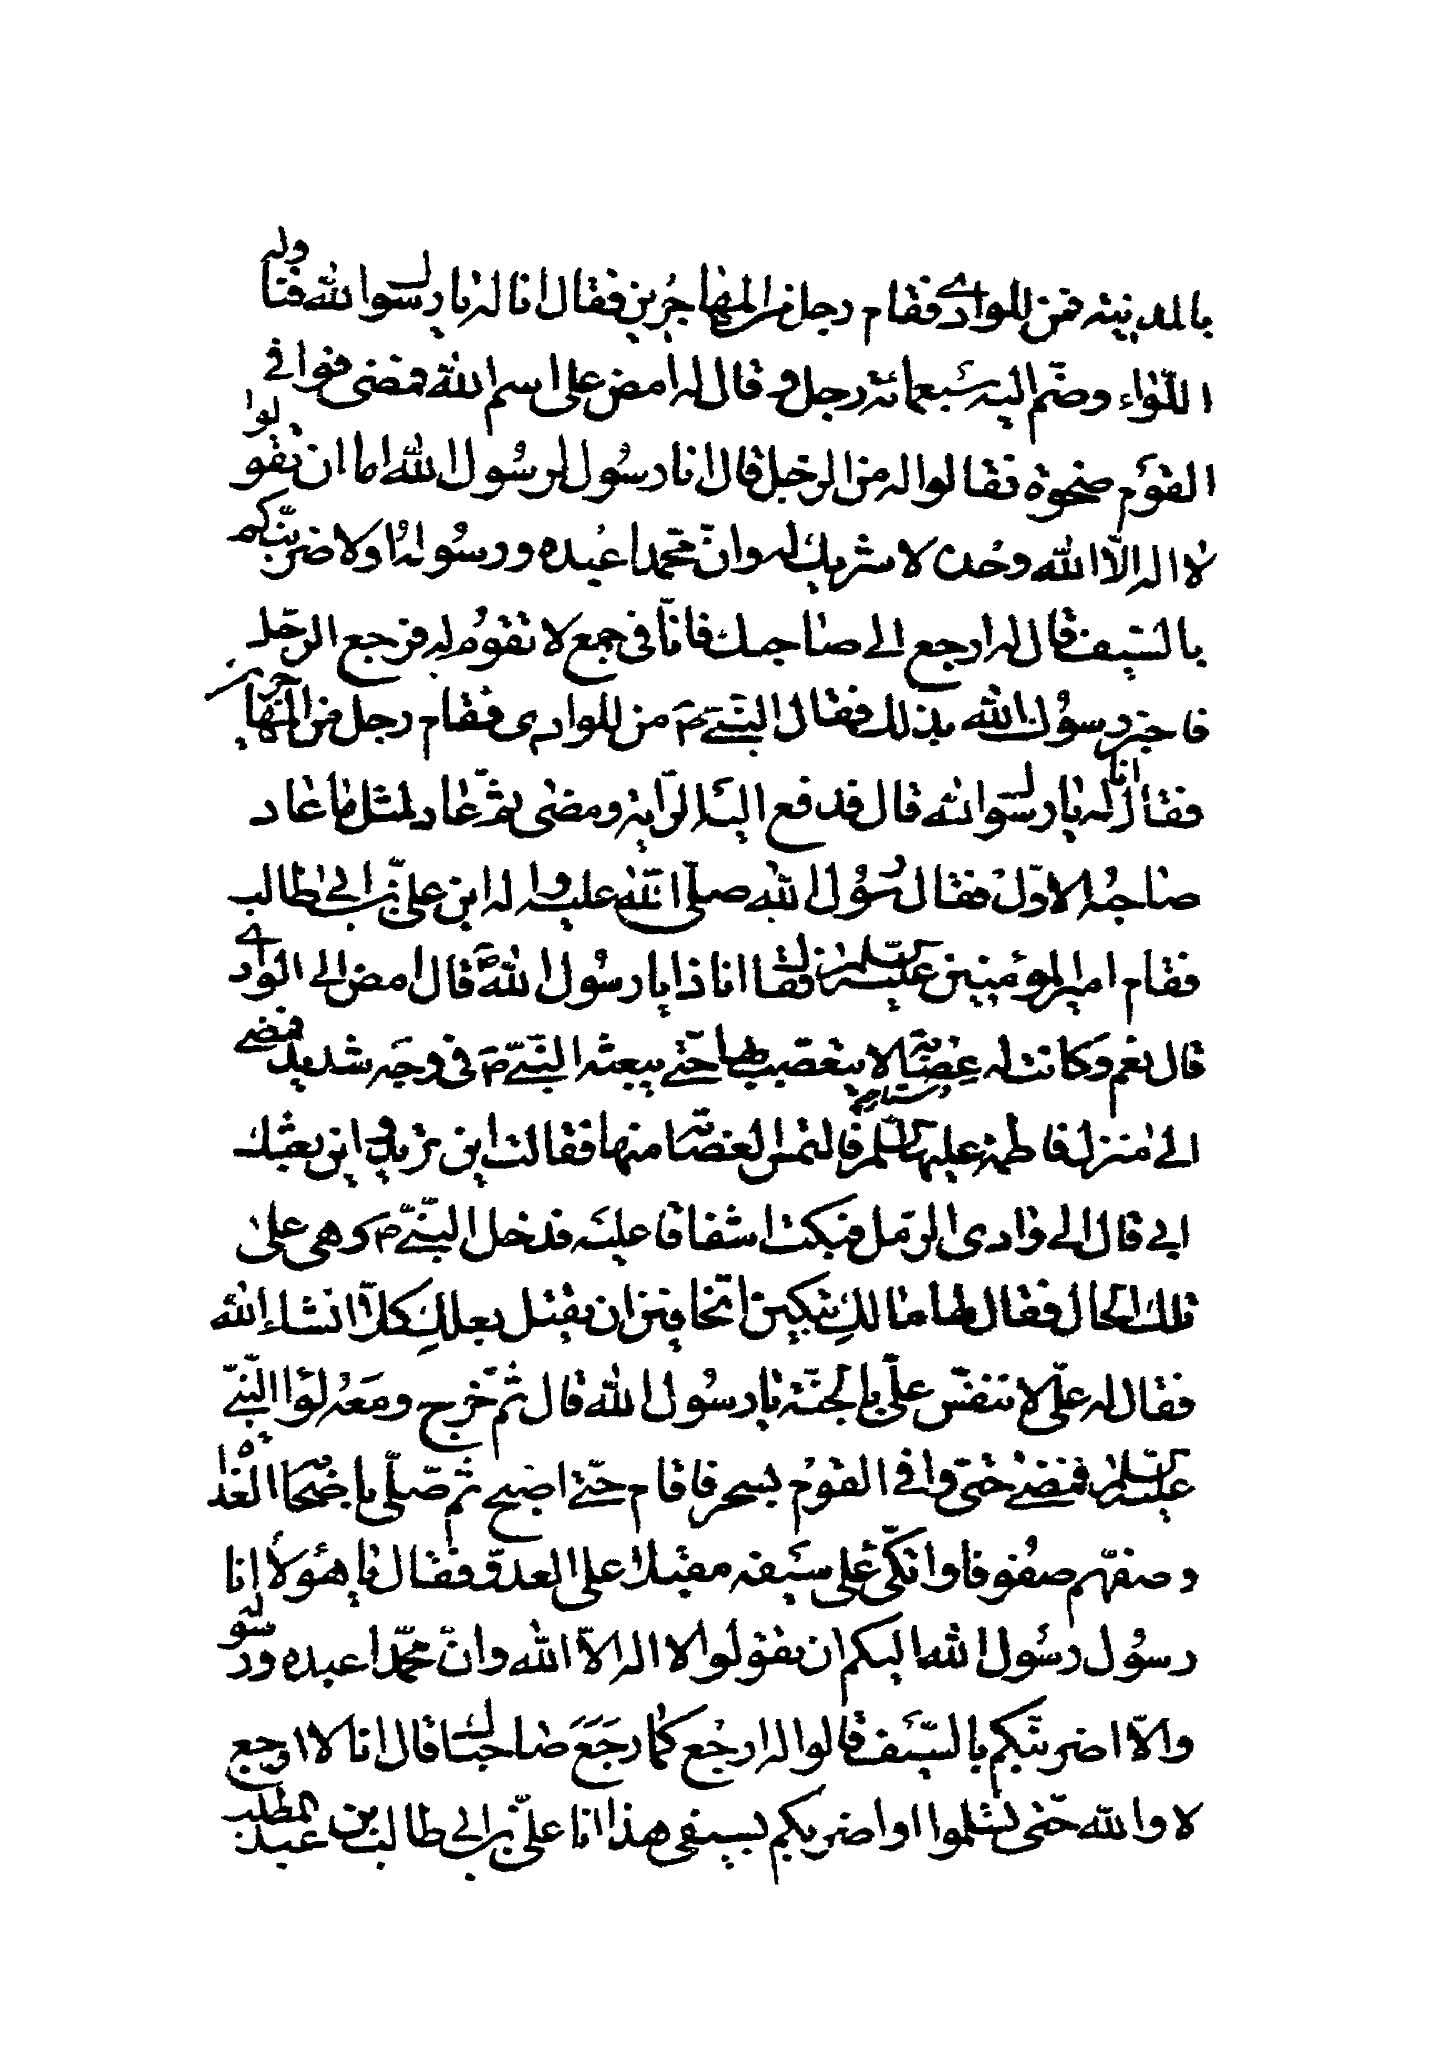 بالمدينة فمن للوادي فقام رجل من المهاجرين فقال انا له يا رسول الله فناوله
اللّواء وضمّ اليه سبعمائة رجل وقال له امض على اسم الله فمضى فوافى
القوم ضحوة فقالوا له من الرجل قال انا رسول لرسول الله اما ان تقولوا
لا اله الّا الله وحده لا شريك له وانّ محمّدا عبده ورسوله او لاضربنّكم
بالسّيف قال له ارجع الى صاحبك فانّا في جمع لا تقوم له فرجع الرّجل
فاخبر رسول الله بذلك فقال النّبيّ ص من للوادي فقام رجل من المهاجرين
فقال انا له يا رسول الله قال فدفع اليه الرّاية ومضى ثمّ عاد لمثل ما عاد
صاحبه الاوّل فقال رسول الله صلّى الله عليه واله اين عليّ بن ابي طالب
فقام امير المؤمنين عليه السلام فقال انا ذا يا رسول الله ص قال امض الى الوادي
قال نعم وكانت له عصابة لا يتعصب بها حتّى يبعثه النّبيّ ص في وجه شديد فمضى
الى منزل فاطمة عليها السلام فالتمس العصابة منها فقالت اين تريد واين بعثك
ابي قال الى وادي الرّمل فبكت اشفاقا عليه فدخل النّبيّ ص وهي على
تلك الحال فقال لها ما لكِ تبكين اتخافين ان يقتل بعلكِ كلّا انشاء الله
فقال له عليّ لا تنفس عليّ بالجنّة يا رسول الله قال ثمّ خرج ومعه لواء النّبيّ
عليه السلام فمضى حتى وافى القوم بسحر فاقام حتّى اصبح ثم صلّى باصحابه الغداة
وصفّهم صفوفا واتكى على سيفه مقبلا على العدوّ فقال يا هؤلاء انا
رسول رسول الله اليكم ان تقولوا لا اله الّا الله وانّ محمّدا عبده ورسوله
والّا اضربنّكم بالسّيف قالوا له ارجع كما رجع صاحباك قال انا لا ارجع
لا والله حتّى تسلموا او اضربكم بسيفي هذا انا عليّ بن ابي طالب بن عبد المطلب